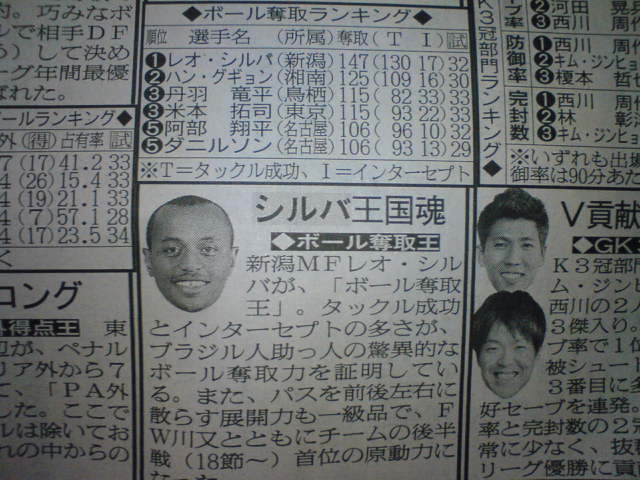 的。巧みなボ
ルで相手DF
う)して決め
ーグ年間最優
ばれた。
ールランキング◆
外(得)占有率 試
7 (17) 41.2 33
4 (26) 15.4 33
4 (19) 21.1 33
4 ( 7) 57.1 28
4 (17) 23.5 34
◆ボール奪取ランキング◆
順位 選手名 (所属) 奪取 (T I) 試
❶レオ・シルバ(新潟) 147 (130 17) 32
❷ハン・グギョン(湘南) 125 (109 16) 30
❸丹羽 竜平(鳥栖) 115 ( 82 33) 33
❸米本 拓司(東京) 115 ( 93 22) 33
❺阿部 翔平(名古屋) 106 ( 96 10) 32
❺ダニルソン(名古屋) 106 ( 93 13) 29
※T=タックル成功、I=インターセプト
K3冠部門ランキング◆
ブ率
②河田 晃
③西川 周
防御率
①西川 周
②キム・ジンヒョ
③榎本 哲
完封数
①西川 周
②林 彰
③キム・ジンヒョ
※いずれも出
御率は90分あた
シルバ王国魂
◆ボール奪取王◆
新潟MFレオ・シル
バが、「ボール奪取
王」。タックル成功
とインターセプトの多さが、
ブラジル人助っ人の驚異的な
ボール奪取力を証明してい
る。また、パスを前後左右に
散らす展開力も一級品で、F
W川又とともにチームの後半
戦(18節〜)首位の原動力に
なった
コング
外得点王 東
辺が、ペナル
リア外から7
て、「PA外
した。ここで
ルは除いてお
れの中からの
V貢献
◆GK
K3冠部門
ム・ジン
西川の2人
3傑入り。
ブ率で1位
被シュート
3番目に
好セーブを連発。
率と完封数の2冠
常に少なく、抜群
リーグ優勝に貢献